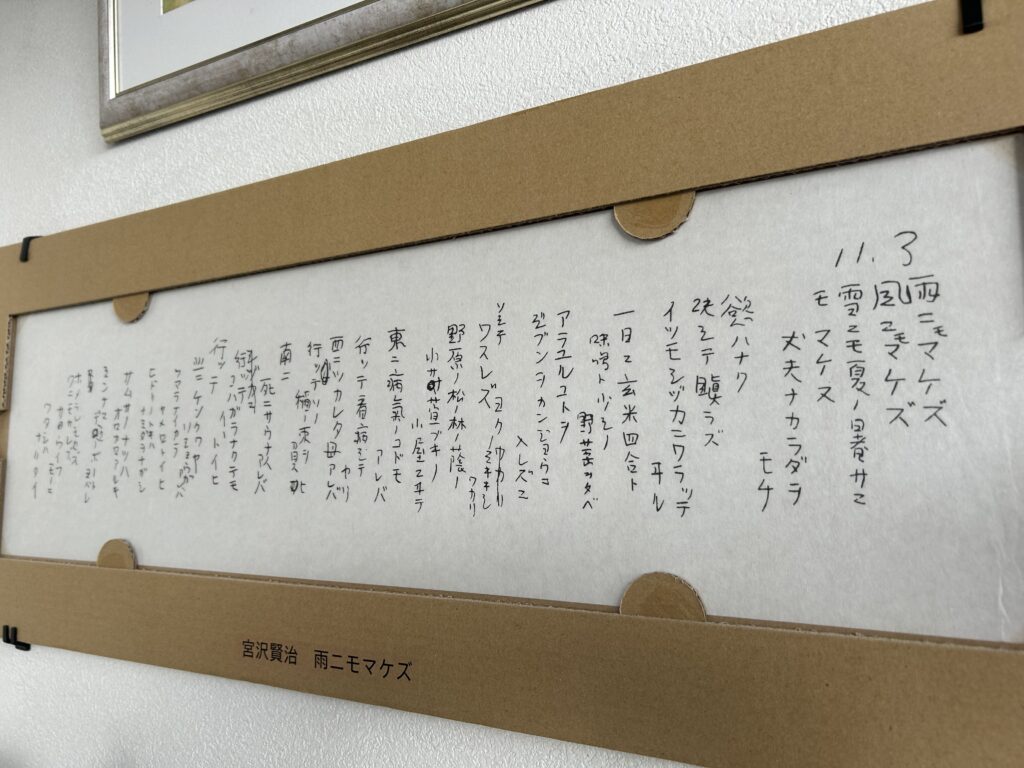 11.3
雨ニモマケズ
風ニモマケズ
雪ニモ夏ノ暑サニ
モ マケヌ
丈夫ナカラダヲ
モチ
慾ハナク
決シテ瞋ラズ
イツモシヅカニワラッテ
ヰル
一日ニ玄米四合ト
味噌ト少シノ
野菜ヲタベ
アラユルコトヲ
ジブンヲカンジョウニ
入レズニ
ヨクミキキシ
ワカリ
ソシテ
ワスレズ
野原ノ松ノ林ノ蔭ノ
小サナ萱ブキノ
小屋ニヰテ
東ニ病氣ノコドモ
アレバ
行ッテ看病シテ
ヤリ
西ニツカレタ母アレバ
行ッテソノ
稲ノ束ヲ
負ヒ
南ニ
死ニサウナ人アレバ
行ッテ
コハガラナクテモ
イヽトイヒ
北ニケンクヮヤ
ソショウガアレバ
ツマラナイカラ
ヤメロトイヒ
ヒドリノトキハ
ナミダヲナガシ
サムサノナツハ
オロオロアルキ
ミンナニ
デクノボートヨバレ
ホメラレモセズ
クニモサレズ
サウイフ
モノニ
ワタシハ
ナリタイ
宮沢賢治 雨ニモマケズ